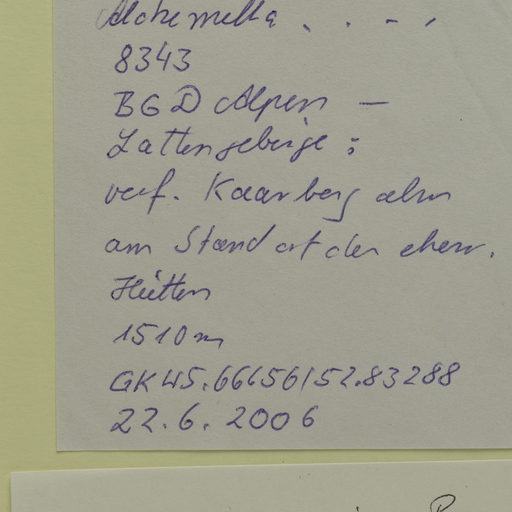 Alchemilla . . - ,
8343
BGD Alpen —
Lattengebirge :
verf. Kaarberg alm
am Standort der ehem.
Hütten
1510m
22.6.2006